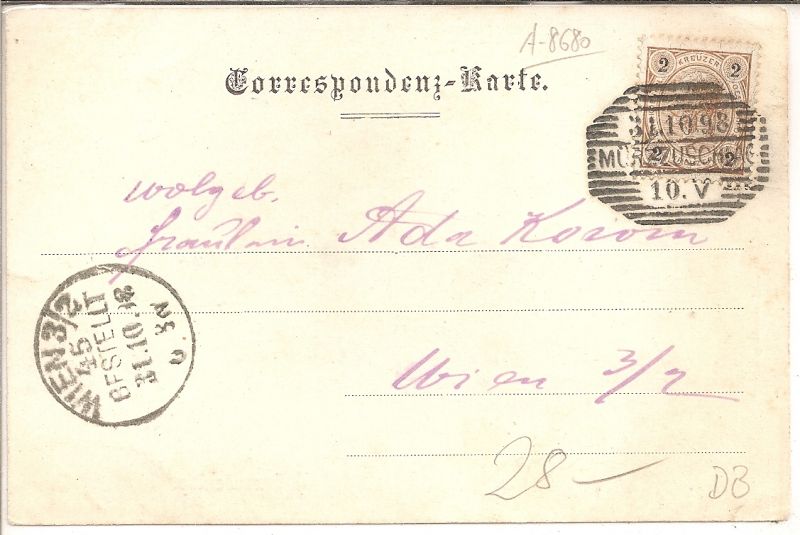 A-8680
Correspondenz-Karte.
2 KREUZER 2
31.10.98
MÜRZZUSCHLAG
2 2
10.V
wolgeb.
Fräulein Ada
Wien 3/2
WIEN 3/2
45
BESTELLT
31.10.98
28—
DB